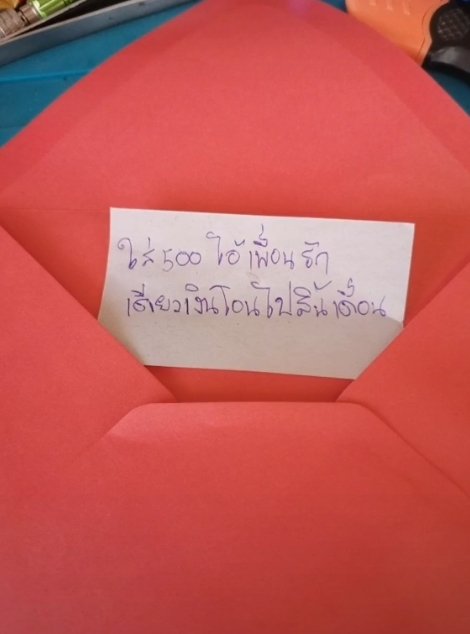 ใส่ 500 ไอ้เพื่อนรัก
เดี๋ยวเงินโอนไปสิ้นเดือน